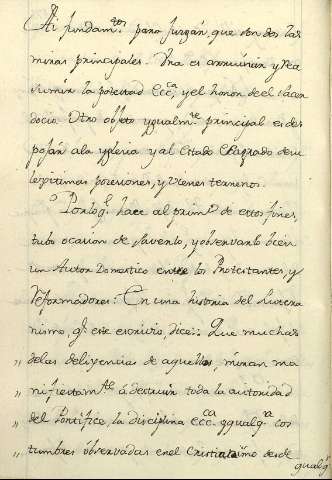 Ai fundam.tos para juzgár, que son dos las
miras principales. Una es arruinár, y resumir
sumír la potestad Ecc.ca y el honor de el sacer
docio. Otro objeto ygualm.te principal es des
pojár ala yglesia y al Estado Sagrado de su
legitimas posesiones, y vienes terrenos.
Porlo q.e hace al prim.o de estos fines,
tubo ocasion de saverlo, y observarlo bien
un Autor Domestico entre los Protestantes, y
Reformadores: En una historia del Lutera
nismo, q.e este escrivio, dice: Que muchas
" delas deligencias de aquellos, miran ma
" nifiestam.te á destruir toda la autoridad
" del Pontifice, la disciplina ecc.ca y qualq.ra cos
" tumbres observadas enel Cristianismo desde
qualq.r